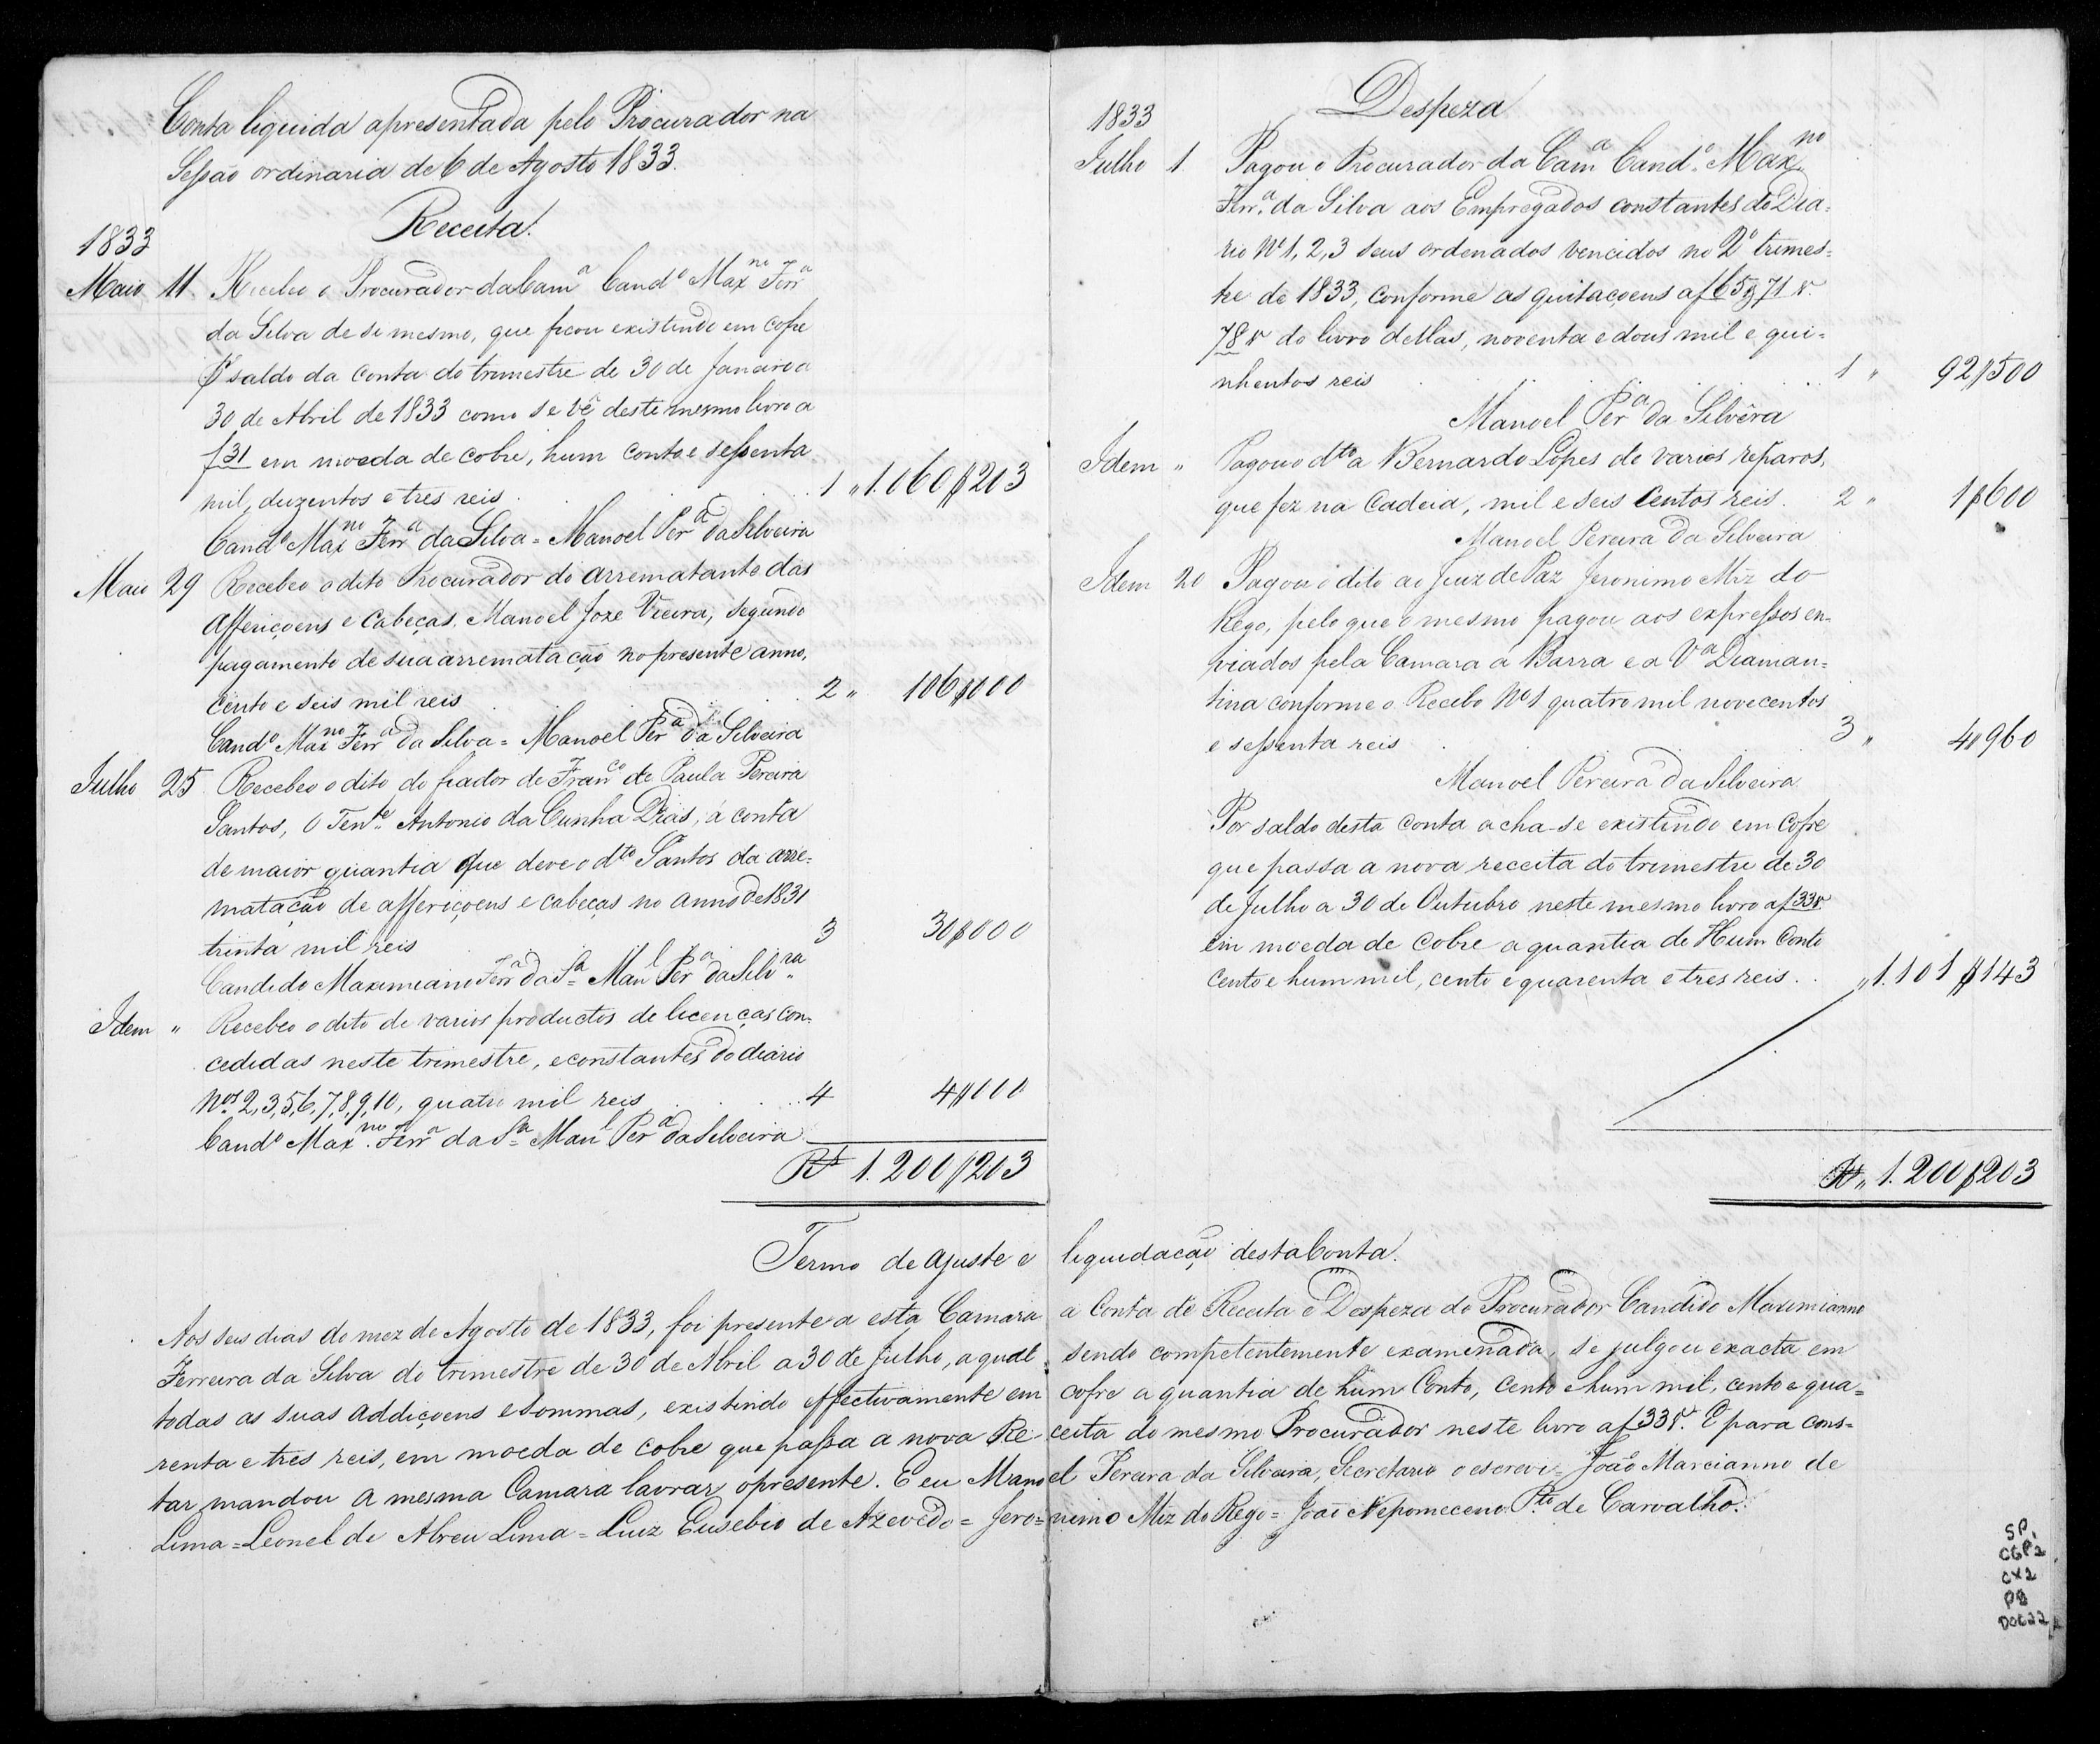 Conta liquida apresentada pelo Procurador na
Sessão ordinaria de 6 de Agosto 1833.
Receita.
1833
Maio 11. Recebeo o Procurador da Camª Candº Maxno Ferrª
da Silva de si mesmo, que ficou existindo em cofre
pr saldo da conta do trimestre de 30 de Janeiro a
30 de Abril de 1833 como se vê deste mesmo livro a
f 31 em moeda de cobre, hum conto e sessenta
mil, duzentos e tres reis . . . 1 " 1.060$203
Candº Maxno Ferrª da Silva = Manoel Perª da Silveira
Maio 29 Recebeo o dito Procurador do arrematante das
Affericoens e Cabeças. Manoel Joze Vieira, segundo
pagamento de sua arrematação no presente anno,
cento e seis mil reis . . . 2 " 106$000
Candº Maxno Ferrª da Silva = Manoel Perª da Silveira
Julho 25 Recebeo o dito do fiador de Franco de Paula Pereira
Santos, o Tente Antonio da Cunha Dias, á conta
de maior quantia que deve o dto Santos da arre=
matação de affericoens e cabeças no anno de 1831
trinta mil reis 3 30$000
Candido Maximiano Ferrª da Sª Manl Perª da Silvra
Idem " Recebeo o dito de varios productos de licenças con=
cedidas neste trimestre, e constantes do diario
Nos 2, 3, 5, 6, 7, 8, 9, 10, quatro mil reis . . . 4 4$000
Candº Maxno Ferrª da Sª Manl Perª da Silveira
Rs 1.200$203
1833
Despeza
Julho 1. Pagou o Procurador da Camª Candº Maxno
Ferrª da Silva aos Empregados constantes do Dia=
rio Nº 1, 2, 3 seus ordenados vencidos no 2º trimes=
tre de 1833, conforme as quitaçoens a f 65, 71 v.
78 v do livro dellas, noventa e dous mil e qui=
nhentos reis . . . 1 " 92$500
Manoel Perª da Silvêra
Idem " Pagou o dto a Bernardo Lopes de varios reparos,
que fez na Cadeia, mil e seis centos reis. 2 " 1$600
Manoel Pereira da Silveira
Idem 20 Pagou o dito ao Juiz de Paz Jeronimo Miz do
Rego, pelo que o mesmo pagou aos expressos en=
viados pela Camara á Barra e a Vª Diaman=
tina conforme o Recibo Nº 1 quatro mil novecentos
e sessenta reis . 3 " 4$960
Manoel Pereira da Silveira
Por saldo desta conta acha-se existindo em Cofre
que passa a nova receita do trimestre de 30
de Julho a 30 de Outubro neste mesmo livro a f 33 v.
em moeda de cobre a quantia de Hum Conto
cento e hum mil, cento e quarenta e tres reis . . " 1.101$143
Rs " 1.200$203
Termo de ajuste e liquidação desta Conta.
Aos seis dias do mez de Agosto de 1833, foi presente a esta Camara a Conta de Receita e Despeza do Procurador Candido Maximianno
Ferreira da Silva do trimestre de 30 de Abril a 30 de Julho, a qual sendo competentemente examinada, se julgou exacta em
todas as suas addiçoens e sommas, existindo effectivamente em cofre a quantia de hum Conto, cento e hum mil, cento e qua=
renta e tres reis, em moeda de cobre que passa a nova Re=ceita do mesmo Procurador neste livro a f 33 v. E para cons=
tar mandou a mesma Camara lavrar o presente. E eu Manoel Pereira da Silveira, Secretario o escrevi = João Marcianno de
Lima = Leonel de Abreu Lima = Luiz Eusebio de Azevedo = Jero=nimo Miz do Rego = João Nepomeceno Pto de Carvalho.
SP.
CGP2
CX2
P8
DOC22